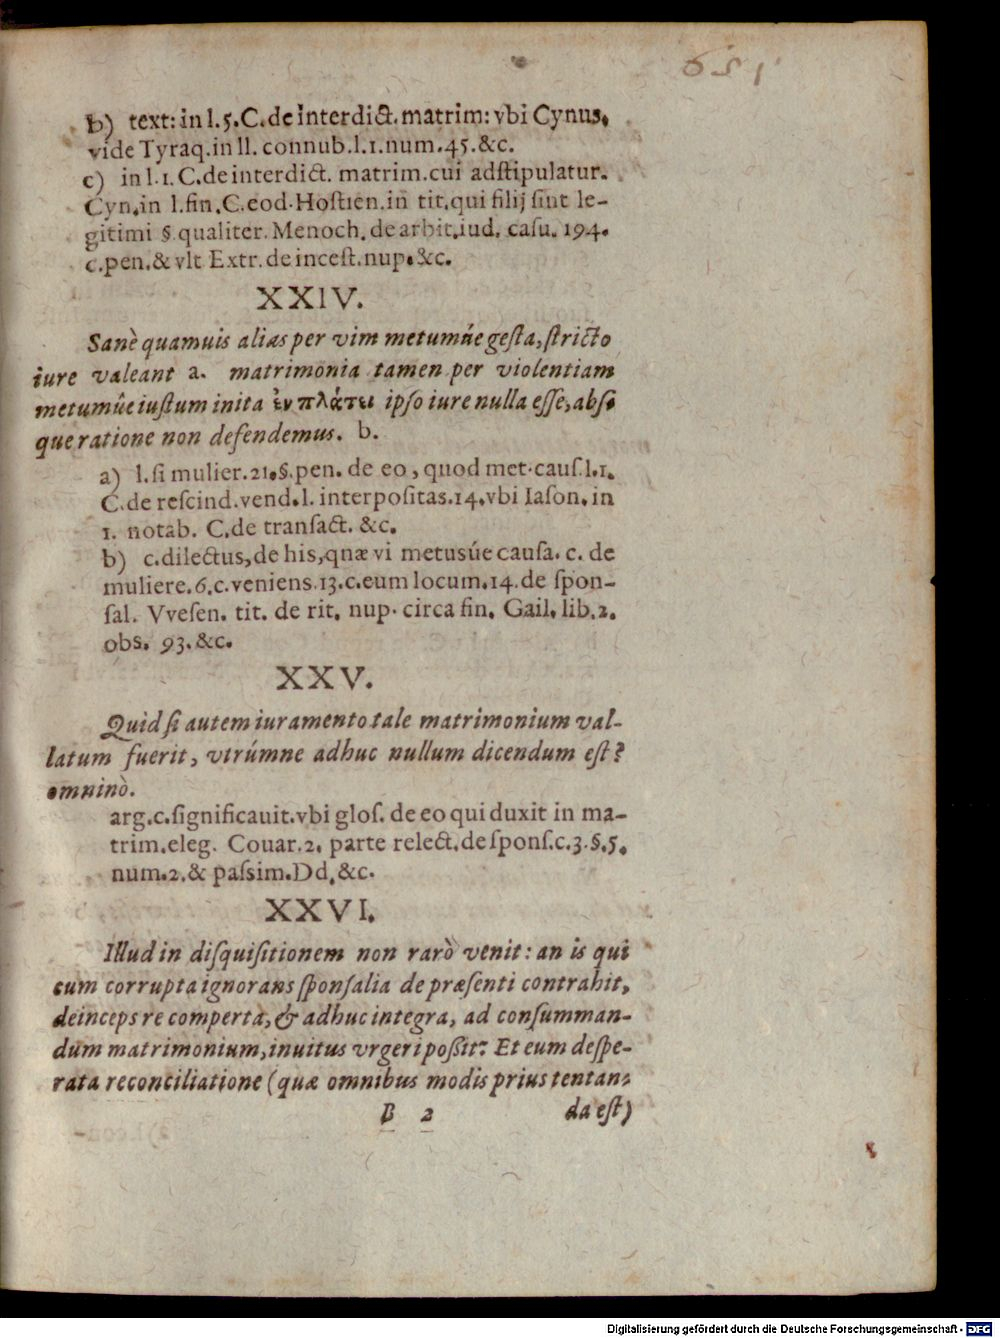 b) text: in l.5.C.de interdict. matrim: vbi Cynus.
vide Tyraq.in ll. connub.l.1.num.45.&c.
c) in l.1.C.de interdict. matrim.cui adſtipulatur.
Cyn.in l.fin.C.eod.Hoſtien.in tit.qui filij ſint le-
gitimi §.qualiter. Menoch.de arbit.iud. caſu.194.
c.pen.& vlt Extr.de inceſt.nup.&c.
XXIV.
Sanè quamuis alias per vim metumúe geſta, ſtricto
iure valeant a. matrimonia tamen per violentiam
metumûe iuſtum inita ἐν πλάτει ipſo iure nulla eſſe, abſ-
que ratione non defendemus. b.
a) l.ſi mulier.21.§.pen. de eo, quod met.cauſ.l.1.
C.de reſcind.vend.l. interpoſitas.14.vbi Iaſon.in
1. notab. C.de transact. &c.
b) c.dilectus,de his,quæ vi metusúe cauſa. c. de
muliere.6.c.veniens.13.c.eum locum.14.de ſpon-
ſal. Vveſen. tit. de rit. nup. circa fin. Gail. lib.2.
obs. 93.&c.
XXV.
Quid ſi autem iuramento tale matrimonium val-
latum fuerit, vtrúmne adhuc nullum dicendum eſt?
omninò.
arg.c.ſignificauit.vbi gloſ. de eo qui duxit in ma-
trim.eleg. Couar.2. parte relect.de ſponſ.c.3.§.5.
num.2.& paſsim.Dd.&c.
XXVI.
Illud in diſquiſitionem non rarò venit: an is qui
cum corrupta ignorans ſponſalia de præſenti contrahit,
deinceps re comperta, & adhuc integra, ad conſumman-
dum matrimonium, inuitus vrgeri poßit? Et eum deſpe-
rata reconciliatione (quæ omnibus modis prius tentan-
B 2 da eſt)
Digitalisierung gefördert durch die Deutsche Forschungsgemeinschaft - DFG